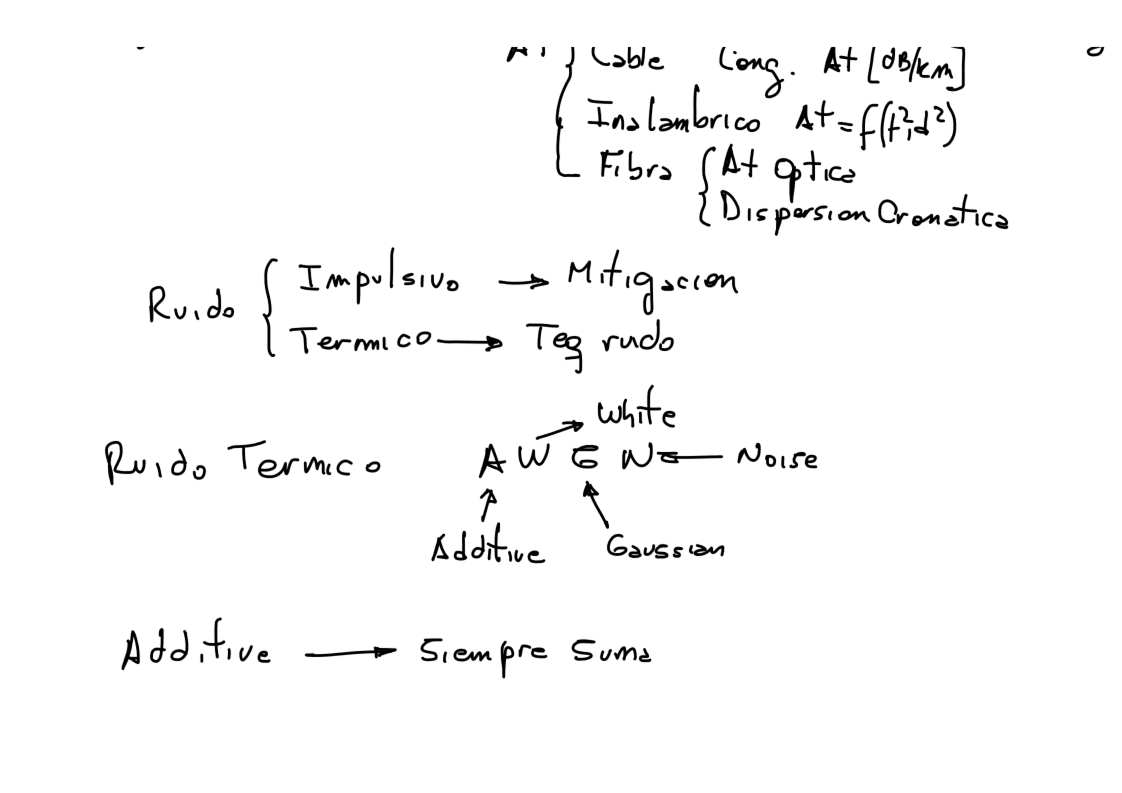 At { Cable Long. At [dB/km]
Inalambrico At = f(f², d²)
Fibra { At optica
Dispersion Cromatica
Ruido { Impulsivo → Mitigacion
Termico → Teq ruido
White
Ruido Termico A W G N ← Noise
Additive Gaussian
Additive → Siempre Suma